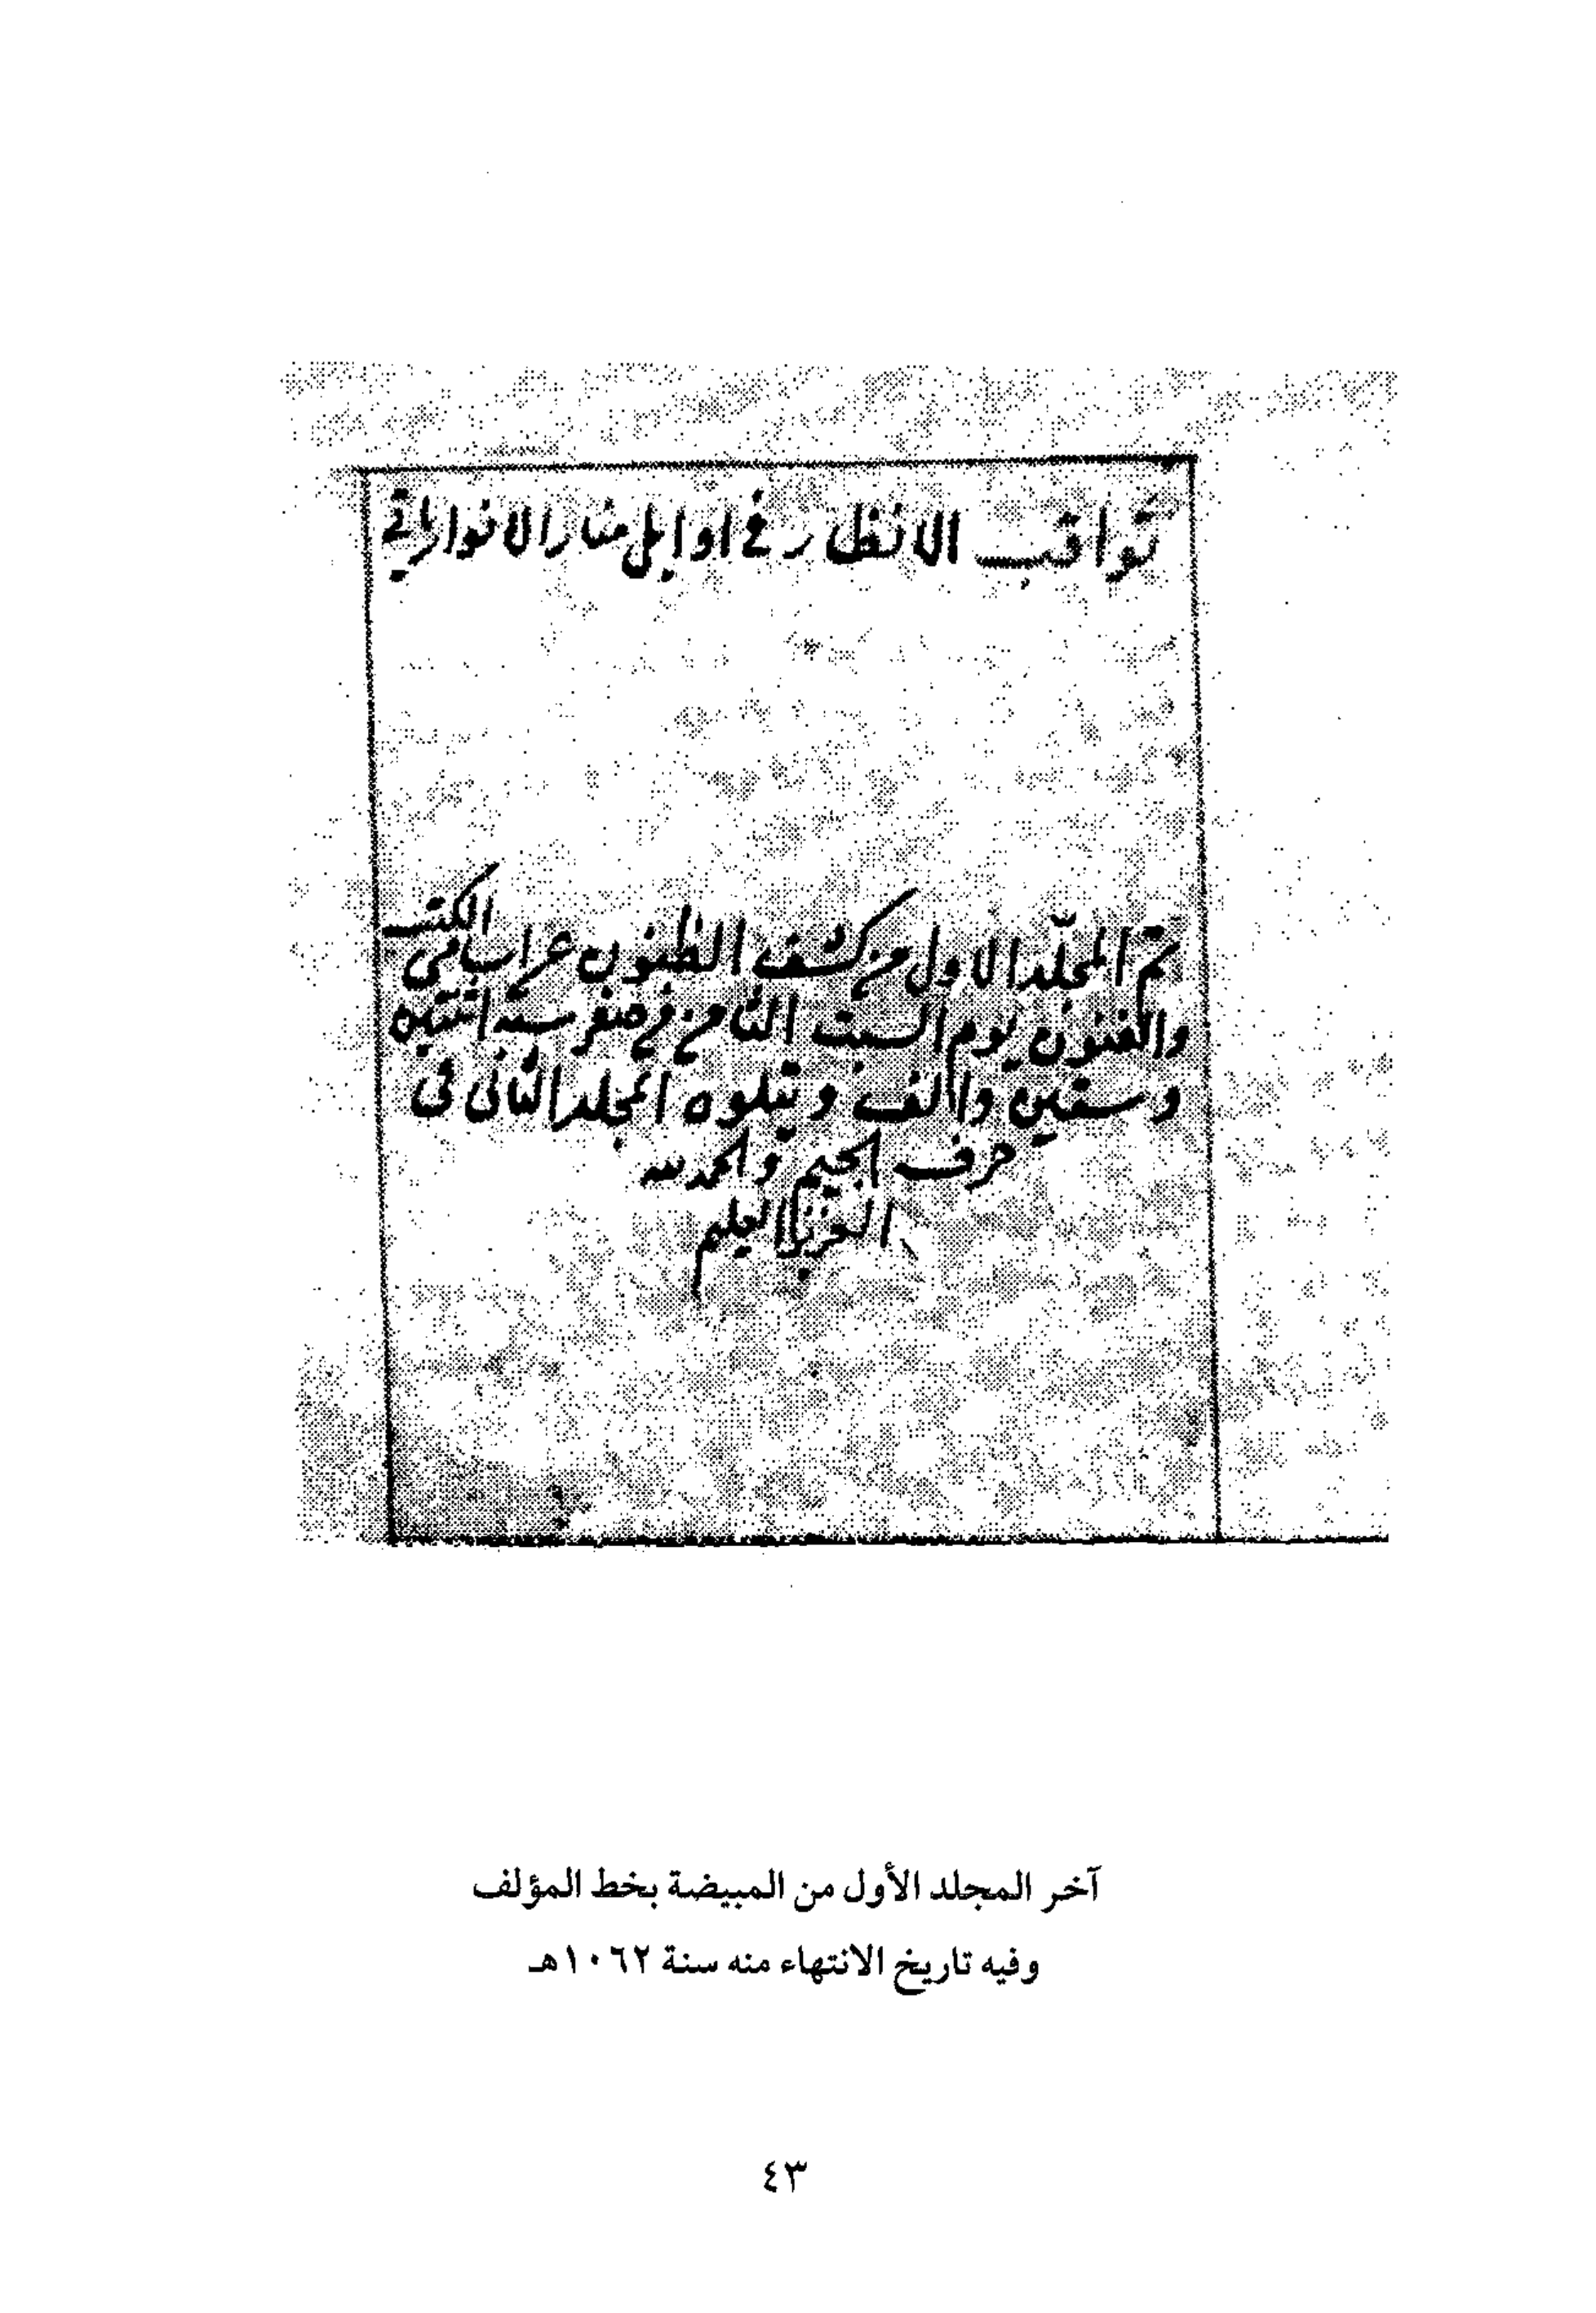 ثواقب الانظار في اوايل منار الانوار ياتي
تم المجلّد الاول من كشف الظنون عن اسامى الكتب
والفنون يوم السبت الثامن من صفر سنه اثنتين
وستين والف ويتلوه المجلد الثانى فى
حرف الجيم والحمد لله
العزيز العليم
آخر المجلد الأول من المبيضة بخط المؤلف
وفيه تاريخ الانتهاء منه سنة ١٠٦٢هـ
٤٣